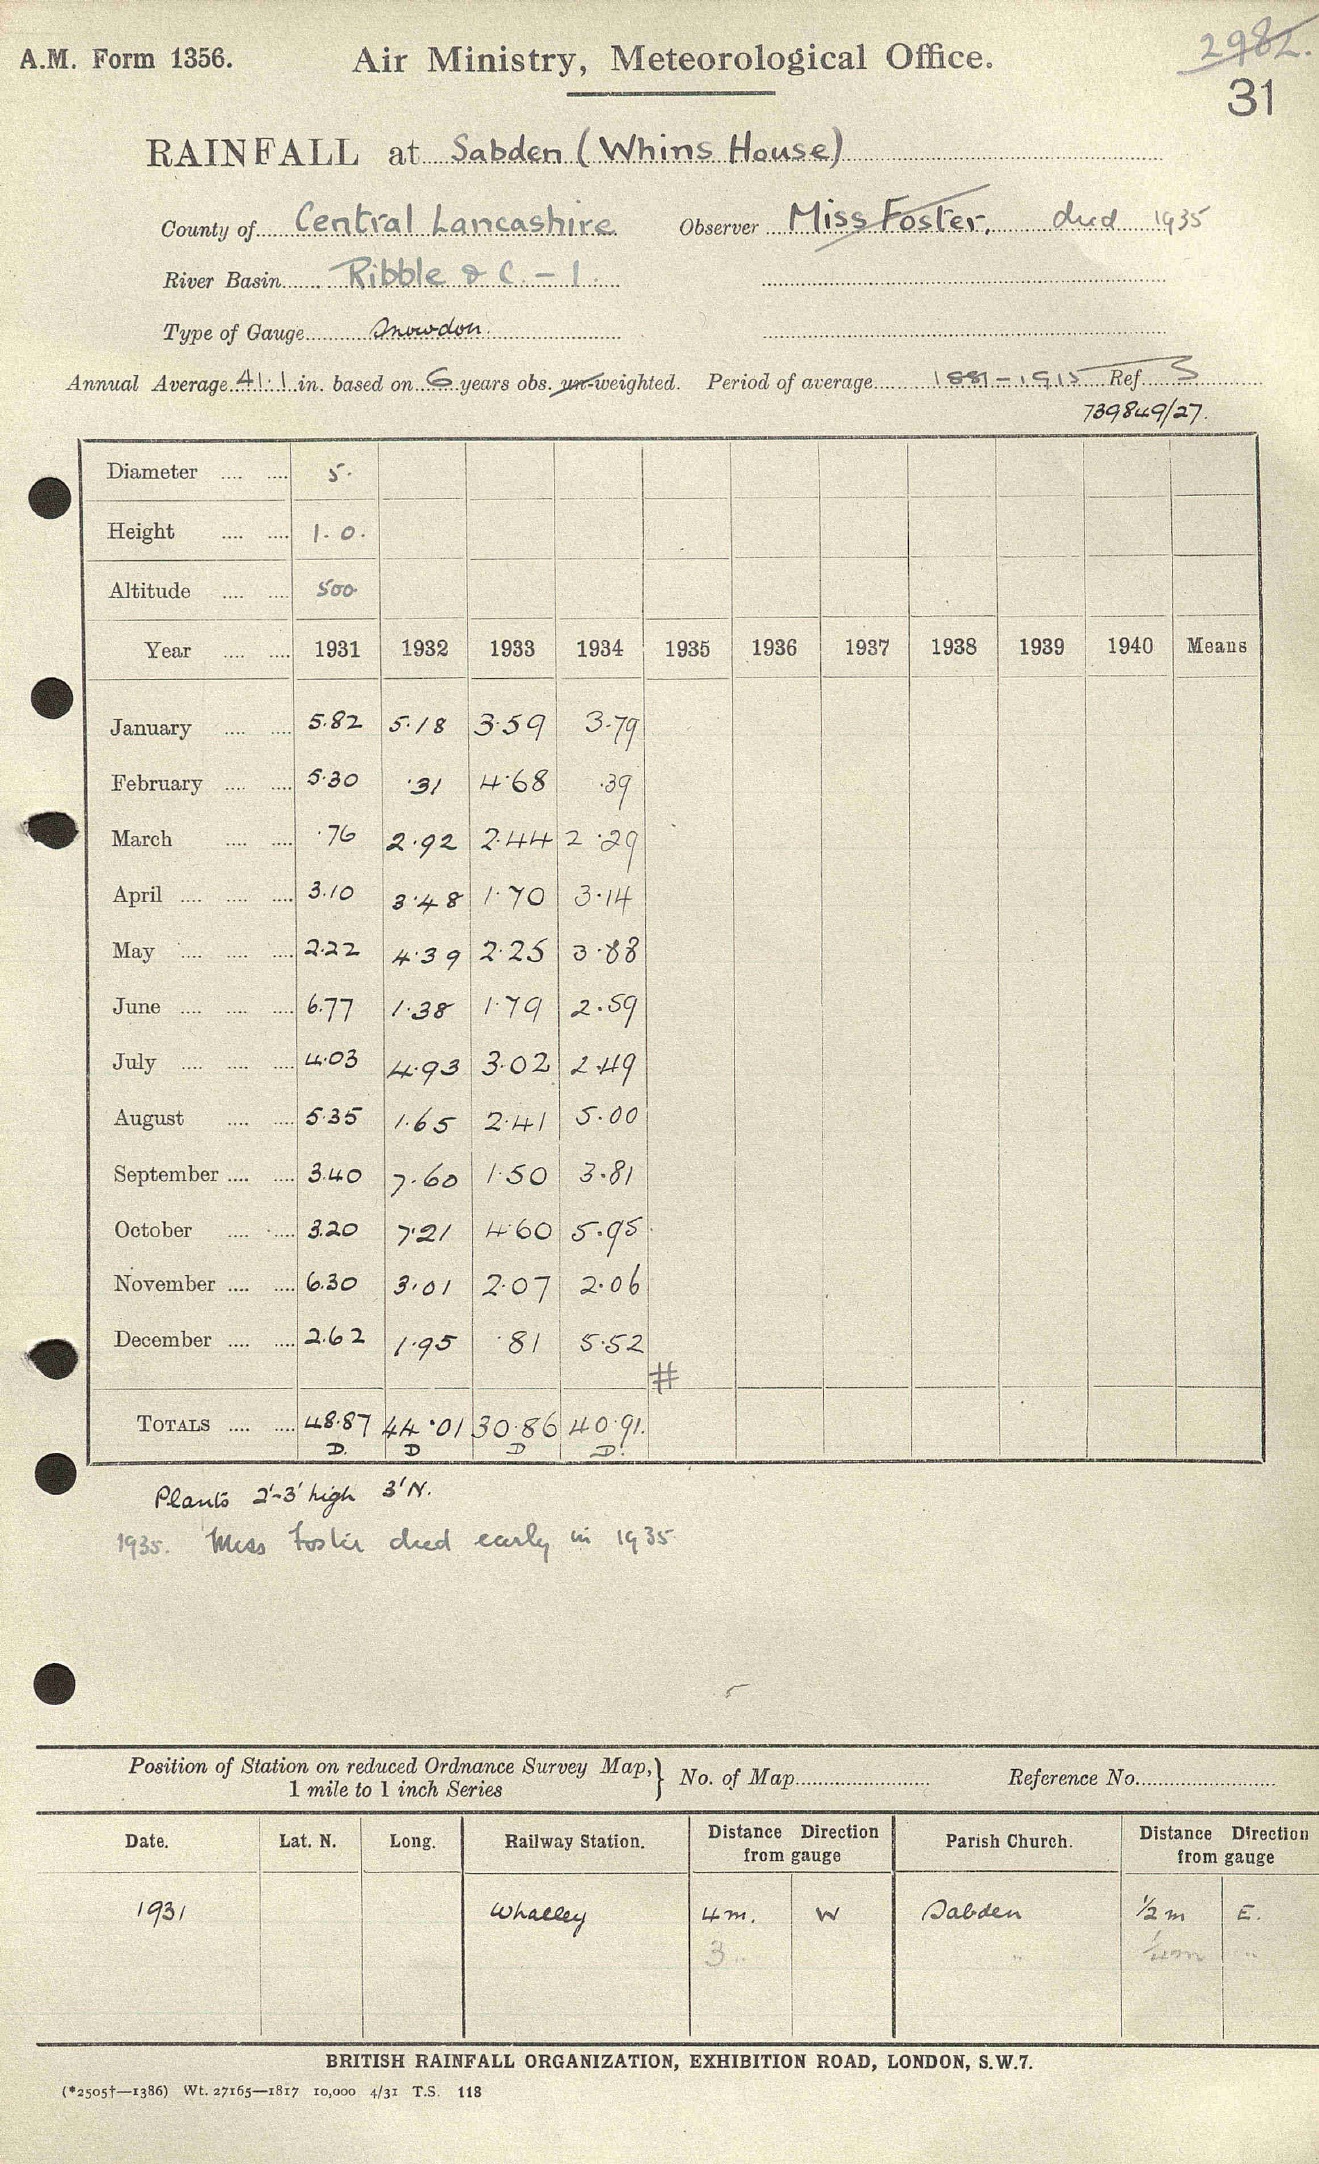 A.M. Form 1356. Air Ministry, Meteorological Office. 2982.
31
RAINFALL at Sabden (Whins House)
County of Central Lancashire Observer Miss Foster, died 1935
River Basin Ribble & C. – 1.
Type of Gauge Snowdon.
Annual Average 41.1 in. based on 6 years obs. un-weighted. Period of average 1881–1915 Ref. 3
739849/27.
Diameter .... .... 5.
Height .... .... 1. 0.
Altitude .... .... 500
Year .... .... 1931 1932 1933 1934 1935 1936 1937 1938 1939 1940 Means
January .... .... 5.82 5.18 3.59 3.79
February .... .... 5.30 .31 4.68 .39
March .... .... .76 2.92 2.44 2.29
April .... .... .... 3.10 3.48 1.70 3.14
May .... .... .... 2.22 4.39 2.25 3.88
June .... .... .... 6.77 1.38 1.79 2.59
July .... .... .... 4.03 4.93 3.02 2.49
August .... .... 5.35 1.65 2.41 5.00
September .... .... 3.40 7.60 1.50 3.81
October .... .... 3.20 7.21 4.60 5.95
November .... .... 6.30 3.01 2.07 2.06
December .... .... 2.62 1.95 .81 5.52
#
TOTALS .... .... 48.87 44.01 30.86 40.91.
D. D D D.
Plants 2'-3' high 3' N.
1935. Miss Foster died early in 1935
Position of Station on reduced Ordnance Survey Map,} No. of Map Reference No.
1 mile to 1 inch Series
Date. Lat. N. Long. Railway Station. Distance Direction Parish Church. Distance Direction
from gauge from gauge
1931 Whalley 4m. W Sabden ½ m E.
3 .. " ¼m "
BRITISH RAINFALL ORGANIZATION, EXHIBITION ROAD, LONDON, S.W.7.
(*2505†—1386) Wt. 27165—1817 10,000 4/31 T.S. 118